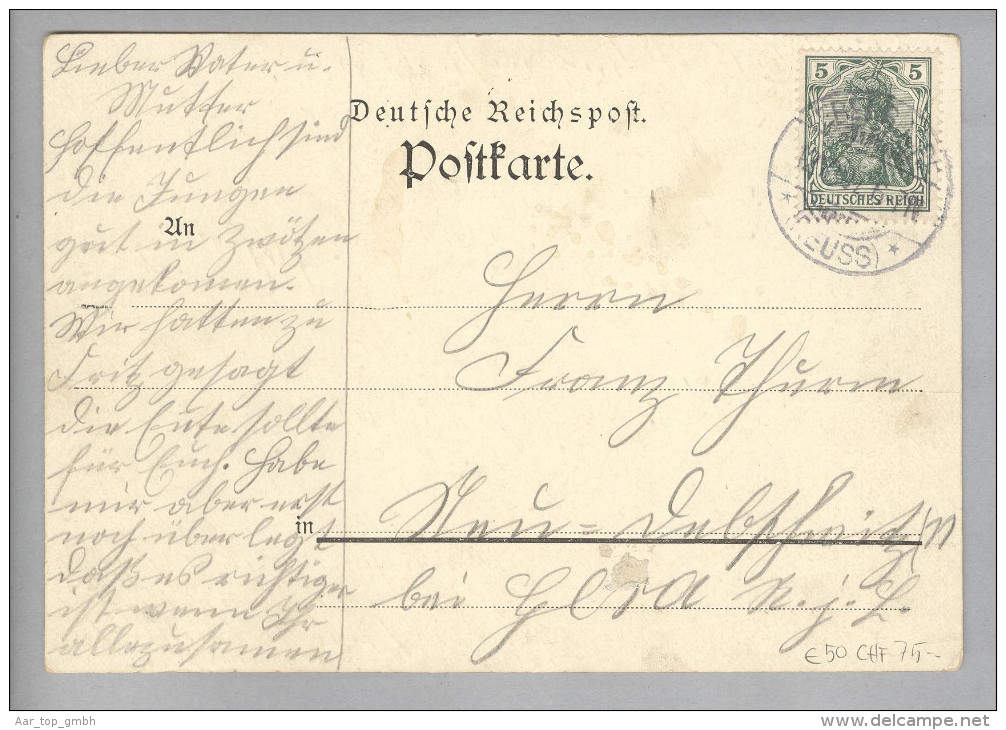 Lieber Vater u.
Mutter
Hoffentlich sind
die Jungen
gut in Zwötzen
angekomen.
Wir hatten zu
Fritz gesagt
die Eute sollte
für Euch. Habe
mir aber erst
noch überlegt
daß es richtiger
ist wenn Ihr
allezusamen
Deutsche Reichspost.
Postkarte.
An
Herrn
Franz Thurm
in Neu-Debschwitz
bei Gera R. j. L.
5 5
DEUTSCHES REICH
(REUSS)
€50 CHF 75.-
Aar_top_gmbh
www.delcampe.net